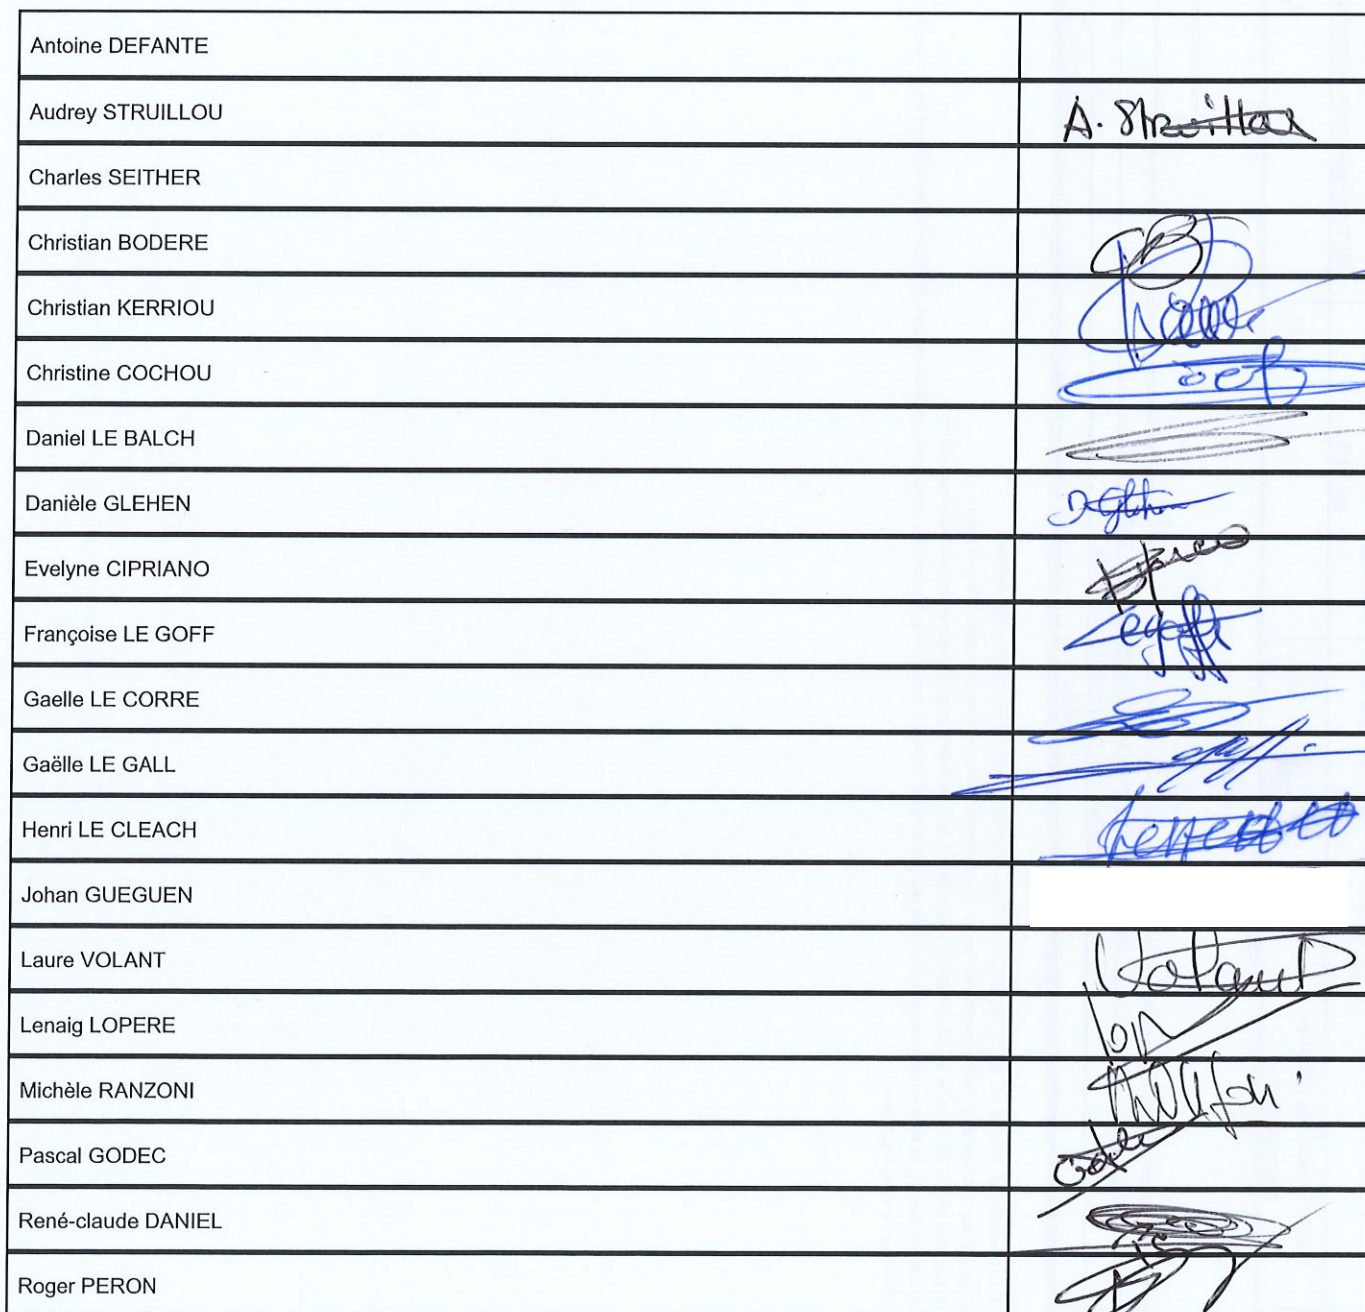 Antoine DEFANTE
Audrey STRUILLOU A. Struillou
Charles SEITHER
Christian BODERE CB
Christian KERRIOU
Christine COCHOU
Daniel LE BALCH
Danièle GLEHEN D Glehen
Evelyne CIPRIANO
Françoise LE GOFF Legoff
Gaelle LE CORRE
Gaëlle LE GALL
Henri LE CLEACH
Johan GUEGUEN
Laure VOLANT Volant
Lenaig LOPERE
Michèle RANZONI
Pascal GODEC
René-claude DANIEL
Roger PERON